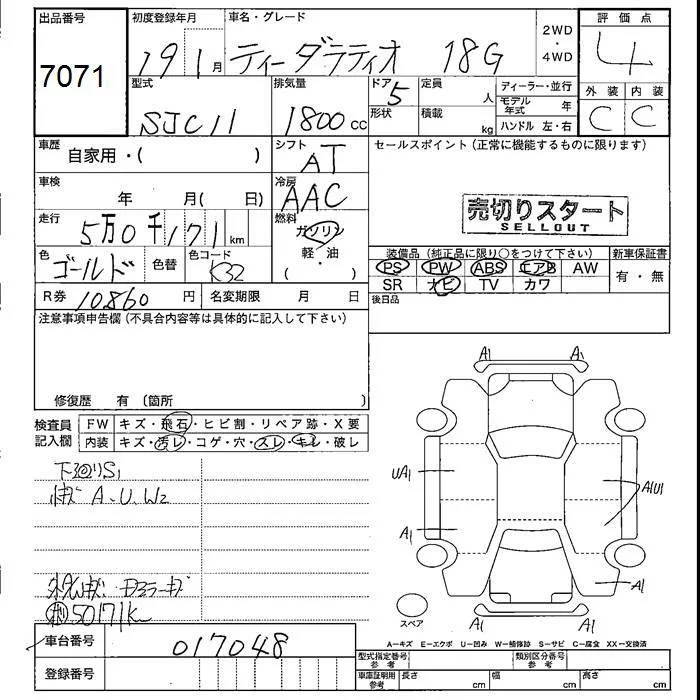 出品番号 初度登録年月 車名・グレード 2WD・4WD 評価点
7071 19 1月 ティーダラティオ 18G 4
型式 排気量 ドア 定員 人 ディーラー・並行 外装 内装
SJC11 1800cc 5 形状 積載 kg モデル年式 年 C C
ハンドル 左・右
車歴 自家用・( ) シフト AT セールスポイント(正常に機能するものに限ります)
車検 年 月( 日) 冷房 AAC
売切りスタート
SELLOUT
走行 5万0千171km 燃料 ガソリン 軽・油 ( )
色 ゴールド 色替 色コード K32
装備品(純正品に限り○をつけて下さい) 新車保証書
PS PW ABS エアB AW 有・無
SR ナビ TV カワ
R券 10,860円 名変期限 月 日 後日品
注意事項申告欄(不具合内容等は具体的に記入して下さい)
修復歴 有(箇所 )
検査員記入欄 FW キズ・飛石・ヒビ割・リペア跡・X要
内装 キズ・汚レ・コゲ・穴・スレ・キレ・破レ
下廻りS1
A、U、W2
50171K
A1 A1
UA1 A1U1
A1 A1
A1 A1
スペア
A-キズ E-エクボ U-凹み W-補修跡 S-サビ C-腐食 XX-交換済
車台番号 017048
登録番号
型式指定番号 参考 類別区分番号 参考
車庫証明用 参考 長さ cm 幅 cm 高さ cm